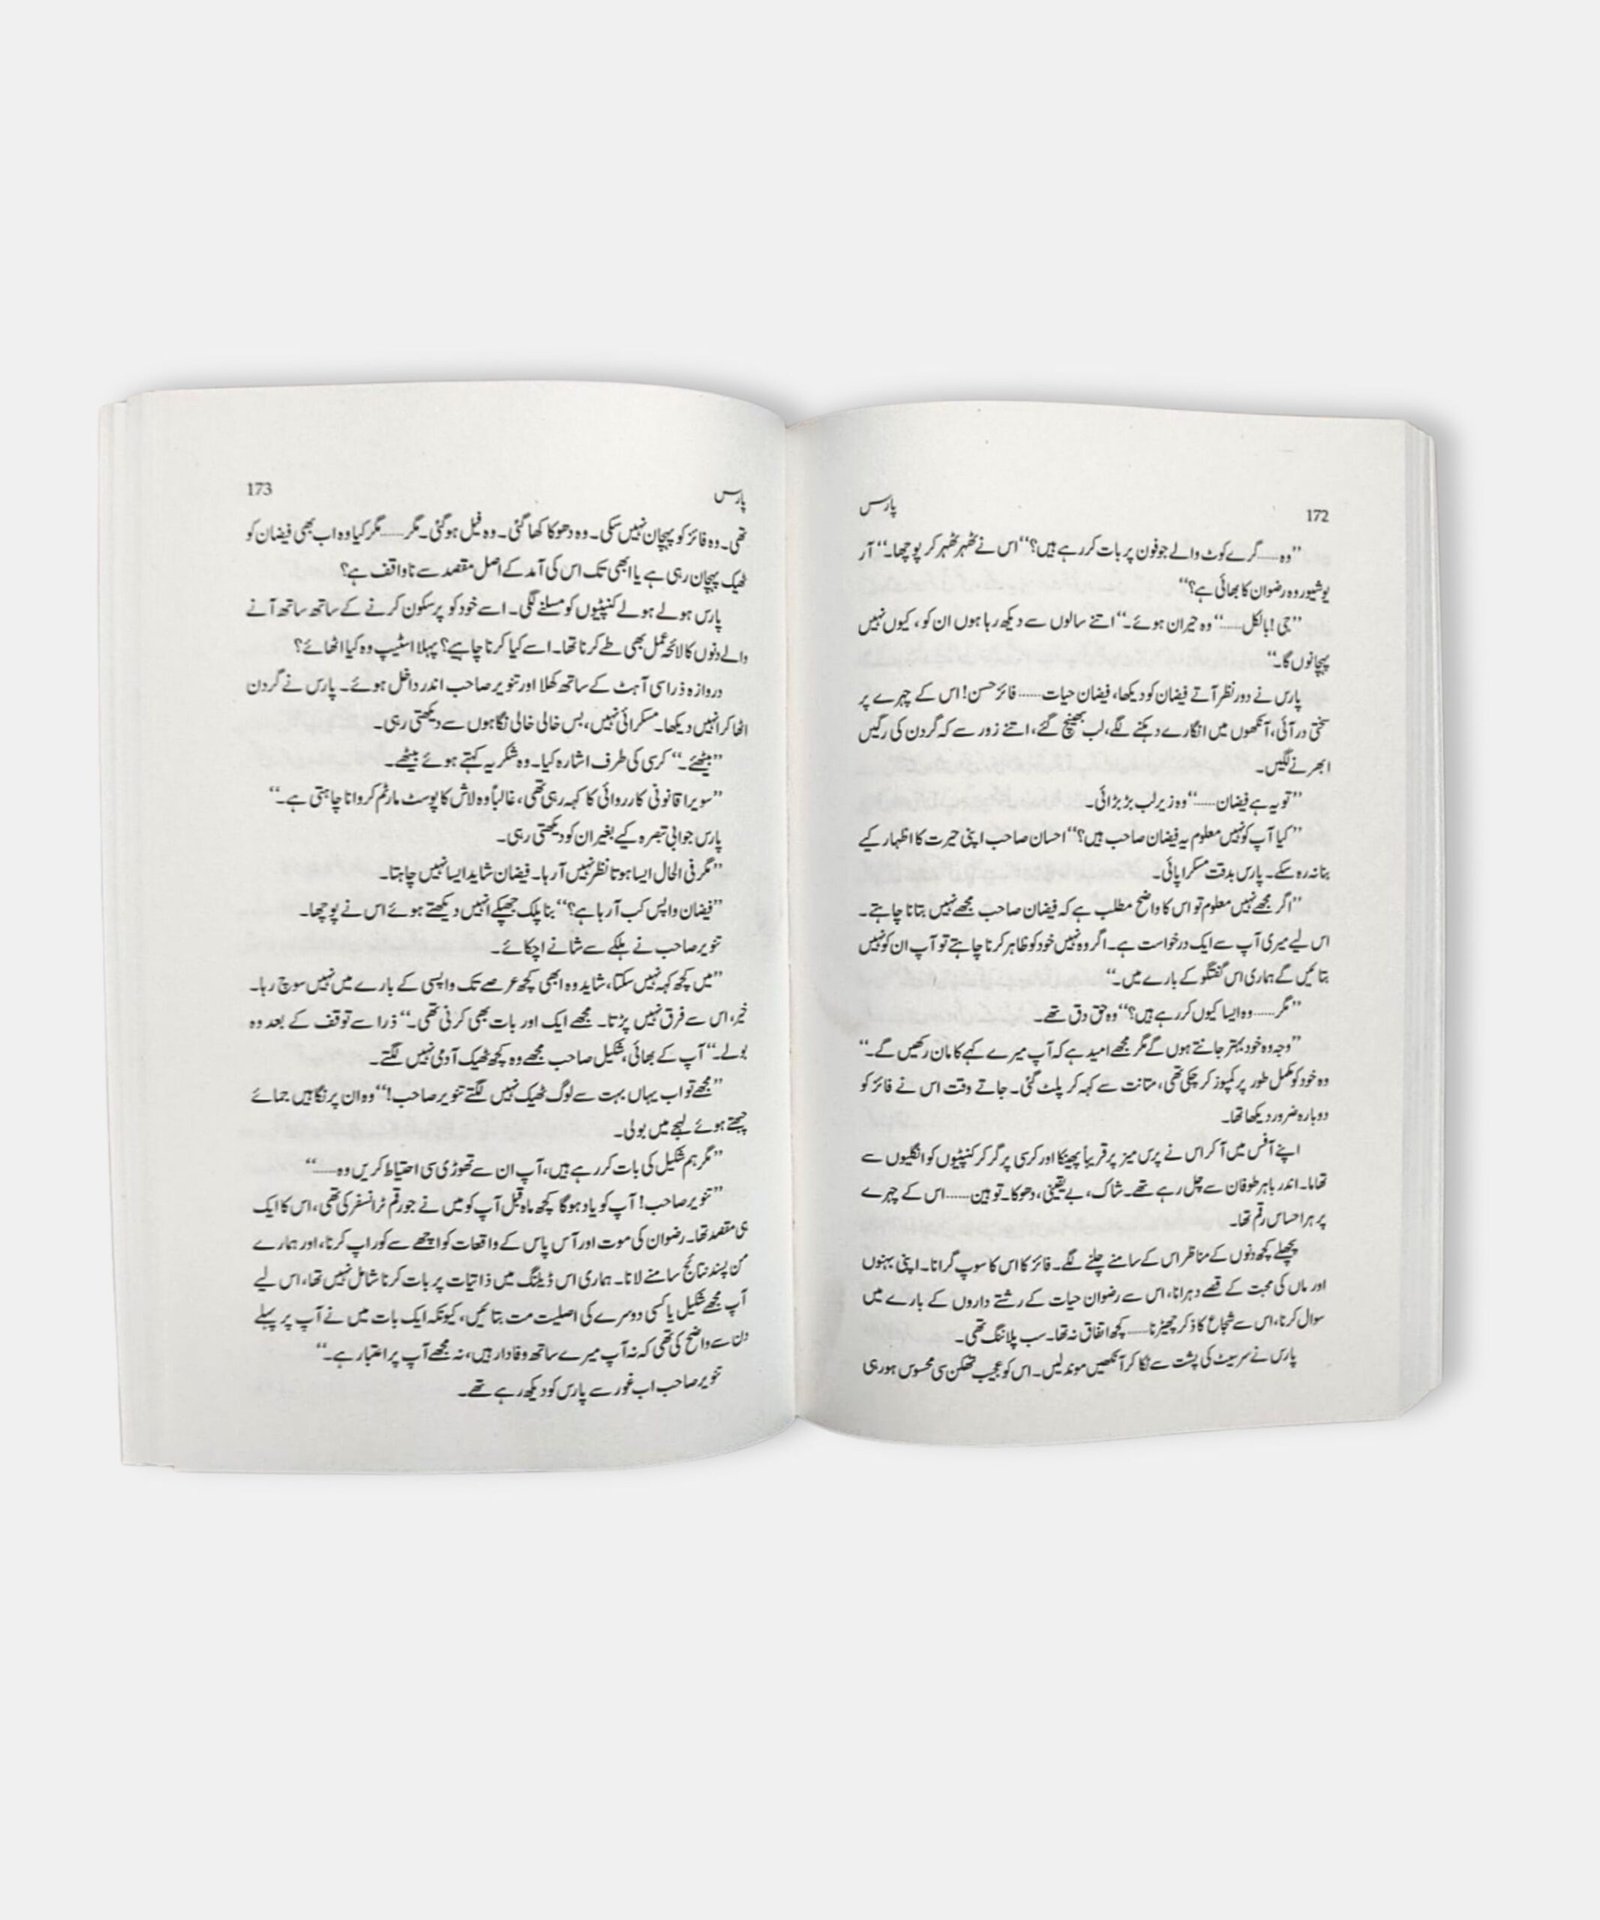 172
پارس
”وہ......گرے کوٹ والے جو فون پر بات کر رہے ہیں؟“ اس نے ٹھہر ٹھہر کر پوچھا۔ ”آر
یو شیور وہ رضوان کا بھائی ہے؟“
”جی! بالکل......“ وہ حیران ہوئے۔ ”اتنے سالوں سے دیکھ رہا ہوں ان کو، کیوں نہیں
پہچانوں گا۔“
پارس نے دور نظر آتے فیضان کو دیکھا، فیضان حیات...... فائز حسن! اس کے چہرے پر
سختی در آئی، آنکھوں میں انگارے دہکنے لگے، لب بھینچ گئے، اتنے زور سے کہ گردن کی رگیں
ابھرنے لگیں۔
”تو یہ ہے فیضان......“ وہ زیر لب بڑبڑائی۔
”کیا آپ کو نہیں معلوم یہ فیضان صاحب ہیں؟“ احسان صاحب اپنی حیرت کا اظہار کیے
بنا نہ رہ سکے۔ پارس بدقت مسکرا پائی۔
”اگر مجھے نہیں معلوم تو اس کا واضح مطلب ہے کہ فیضان صاحب مجھے نہیں بتانا چاہتے۔
اس لیے میری آپ سے ایک درخواست ہے۔ اگر وہ نہیں خود کو ظاہر کرنا چاہتے تو آپ ان کو نہیں
بتائیں گے ہماری اس گفتگو کے بارے میں۔“
”مگر...... وہ ایسا کیوں کر رہے ہیں؟“ وہ حق دق تھے۔
”وجہ وہ خود بہتر جانتے ہوں گے مگر مجھے امید ہے کہ آپ میرے کہے کا مان رکھیں گے۔“
وہ خود کو مکمل طور پر کمپوز کر چکی تھی، متانت سے کہہ کر پلٹ گئی۔ جاتے وقت اس نے فائز کو
دوبارہ ضرور دیکھا تھا۔
اپنے آفس میں آ کر اس نے پرس میز پر قریباً پھینکا اور کرسی پر گر کر کنپٹیوں کو انگلیوں سے
تھاما۔ اندر باہر طوفان سے چل رہے تھے۔ شاک، بے یقینی، دھوکا۔ توہین...... اس کے چہرے
پر ہر احساس رقم تھا۔
پچھلے کچھ دنوں کے مناظر اس کے سامنے چلنے لگے۔ فائز کا اس کا سوپ گرانا۔ اپنی بہنوں
اور ماں کی محبت کے قصے دہرانا، اس سے رضوان حیات کے رشتے داروں کے بارے میں
سوال کرنا، اس سے شجاع کا ذکر چھیڑنا...... کچھ اتفاق نہ تھا۔ سب پلاننگ تھی۔
پارس نے سر سیٹ کی پشت سے لگا کر آنکھیں موند لیں۔ اس کو عجیب تھکن سی محسوس ہو رہی
پارس
173
تھی۔ وہ فائز کو پہچان نہیں سکی۔ وہ دھوکا کھا گئی۔ وہ فیل ہو گئی۔ مگر...... مگر کیا وہ اب بھی فیضان کو
ٹھیک پہچان رہی ہے یا ابھی تک اس کی آمد کے اصل مقصد سے ناواقف ہے؟
پارس ہولے ہولے کنپٹیوں کو مسلنے لگی۔ اسے خود کو پرسکون کرنے کے ساتھ ساتھ آنے
والے دنوں کا لائحہ عمل بھی طے کرنا تھا۔ اسے کیا کرنا چاہیے؟ پہلا اسٹیپ وہ کیا اٹھائے؟
دروازہ ذرا سی آہٹ کے ساتھ کھلا اور تنویر صاحب اندر داخل ہوئے۔ پارس نے گردن
اٹھا کر انہیں دیکھا۔ مسکرائی نہیں، بس خالی خالی نگاہوں سے دیکھتی رہی۔
”بیٹھئے۔“ کرسی کی طرف اشارہ کیا۔ وہ شکریہ کہتے ہوئے بیٹھے۔
”سویرا قانونی کارروائی کا کہہ رہی تھی، غالباً وہ لاش کا پوسٹ مارٹم کروانا چاہتی ہے۔“
پارس جوابی تبصرہ کیے بغیر ان کو دیکھتی رہی۔
”مگر فی الحال ایسا ہوتا نظر نہیں آ رہا۔ فیضان شاید ایسا نہیں چاہتا۔
”فیضان واپس کب آ رہا ہے؟“ بنا پلک جھپکے انہیں دیکھتے ہوئے اس نے پوچھا۔
تنویر صاحب نے ہلکے سے شانے اچکائے۔
”میں کچھ کہہ نہیں سکتا، شاید وہ ابھی کچھ عرصے تک واپسی کے بارے میں نہیں سوچ رہا۔
خیر، اس سے فرق نہیں پڑتا۔ مجھے ایک اور بات بھی کرنی تھی۔“ ذرا سے توقف کے بعد وہ
بولے۔ ”آپ کے بھائی، شکیل صاحب مجھے وہ کچھ ٹھیک آدمی نہیں لگتے۔
”مجھے تو اب یہاں بہت سے لوگ ٹھیک نہیں لگتے تنویر صاحب!“ وہ ان پر نگاہیں جمائے
چبھتے ہوئے لہجے میں بولی۔
”مگر ہم شکیل کی بات کر رہے ہیں، آپ ان سے تھوڑی سی احتیاط کریں وہ......“
”تنویر صاحب! آپ کو یاد ہوگا کچھ ماہ قبل آپ کو میں نے جو رقم ٹرانسفر کی تھی، اس کا ایک
ہی مقصد تھا۔ رضوان کی موت اور آس پاس کے واقعات کو اچھے سے کور اپ کرنا، اور ہمارے
من پسند نتائج سامنے لانا۔ ہماری اس ڈیلنگ میں ذاتیات پر بات کرنا شامل نہیں تھا، اس لیے
آپ مجھے شکیل یا کسی دوسرے کی اصلیت مت بتائیں، کیونکہ ایک بات میں نے آپ پر پہلے
دن سے واضح کی تھی کہ نہ آپ میرے ساتھ وفادار ہیں، نہ مجھے آپ پر اعتبار ہے۔“
تنویر صاحب اب غور سے پارس کو دیکھ رہے تھے۔